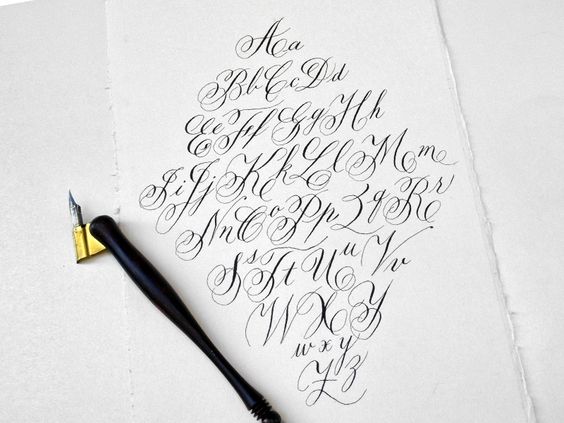 Aa
Bb Cc Dd
Ee Ff Gg Hh
Ii Jj Kk Ll Mm
Nn Oo Pp Qq Rr
Ss Tt Uu Vv
W X Y
w x y
Z z